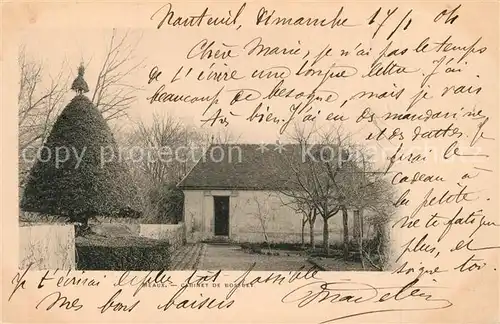 Nanteuil, Dimanche 17/1 04
Chère Marie, je n'ai pas le temps
de t'écrire une longue lettre. J'ai
beaucoup de besogne, mais je vais
très bien. J'ai eu des mandarines
et des dattes. Je
ferai le
cadeau à
la petite.
ne te fatigue
plus, et
soigne toi.
Je t'écrirai le plus tôt possible
MEAUX. — CABINET DE BOSSUET
Mes bons baisers